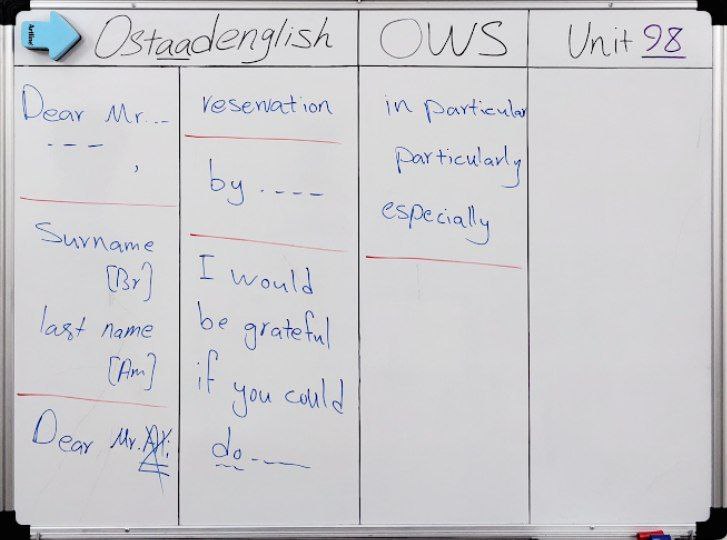 Ostaadenglish
OWS
Unit 98
Dear Mr...
- - -
,
Surname
[Br]
last name
[Am]
Dear Mr.
reservation
by ----
I would
be grateful
if you could
do ---
in particular
particularly
especially